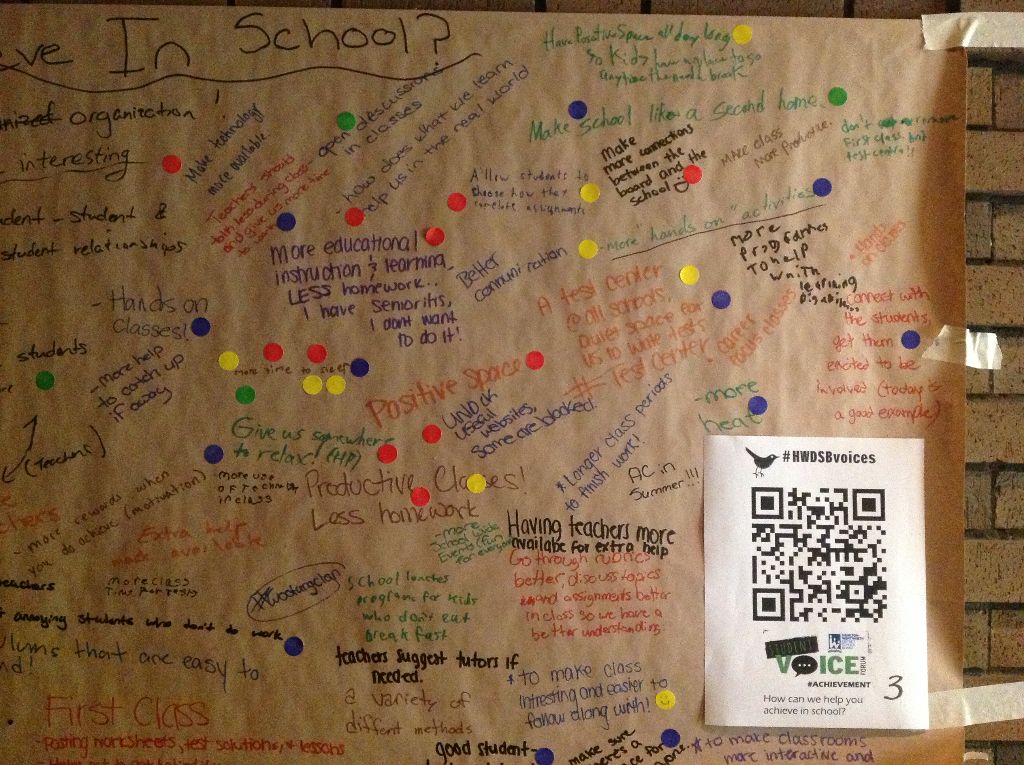 In School?
organization!
interesting
student &
student relationships
Make technology
more available.
Teachers should
and give us more time
open discussions
in classes
- how does what we learn
help us in the real world
Have Positive Space all day long
So Kids have a place to go
anytime they need a break
Make school like a second home.
Make
more connections
between the
board and the
school
make class
more productive.
don't remove
first class, but
test centre!!
Allow students to
choose how they
complete assignments
- more "hands on" activities
More educational
instruction & learning
LESS homework..
I have Senioritis,
I dont want
to do it!
Better
communication
more
to help
with
learning
A test center
@ all schools,
quiet space for
us to write tests
# Test Center
career
focus classes
connect with
the students,
get them
excited to be
involved (today is
a good example)
- Hands on
classes!
- more help
to catch up
if away
students
more time to sleep
Positive space
UNLOCK
USEful
websites,
some are blocked!
- more
heat
(Teachers)
Give us somewhere
to relax! (HP)
* Longer class periods
to finish work!
AC in
Summer!!!
more use
of tech
in class
Productive Classes!
Less homework
- more rewards when
you do achieve (motivation)
Extra help
made available
- more
school wide
events (fun
for everyone)
Having teachers more
available for extra help
Go through rubrics
better, discuss topics
and assignments better
in class so we have a
better understanding.
teachers
more class
time for tests
school lunches
programs for kids
who don't eat
breakfast
annoying students who don't do work
that are easy to
teachers suggest tutors if
needed.
a variety of
different methods
* to make class
intresting and easier to
follow along with!
First class
- Posting worksheets, test solutions, & lessons
good student-
make sure
* to make classrooms
more interactive and
#HWDSBvoices
STUDENT
VOICE
FORUM
#ACHIEVEMENT
How can we help you
achieve in school?
3